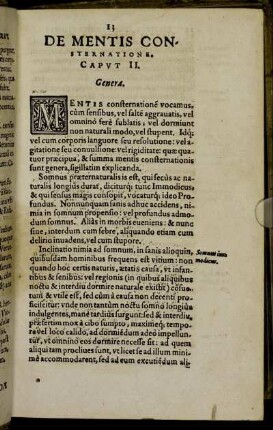 13
DE MENTIS CON-
STERNATIONE.
CAPVT II.
Genera.
MENTIS consternationē vocamus,
cùm sensibus, vel saltē aggrauatis, vel
omninò ferè sublatis; vel dormiunt
non naturali modo, vel stupent. Idq;
vel cum corporis languore seu resolutione: vel a-
gitatione seu conuulsione: vel rigiditate: quæ qua-
tuor præcipua, & summa mentis consternationis
sunt genera, sigillatim explicanda.
Somnus præternaturalis is est, qui secùs ac na-
turalis longiùs durat, diciturq; tunc Immodicus;
& qui sensus magis consopit, vocaturq; ideò Pro-
fundus. Nonnunquam sanis adhuc accidens, ni-
mia in somnum propensio: vel profundus admo-
dum somnus. Aliàs in morbis eueniens: & nunc
sine, interdum cum febre, aliquando etiam cum
delirio inuadens, vel cum stupore.
Inclinatio nimia ad somnum, in sanis alioquin,
quibusdam hominibus frequens est vitium: non
quando hoc certis naturis, ætatis cursu, vt infan-
tibus & senibus: vel regionis (in quibus aliquibus
noctu & interdiu dormire naturale existit) cōsue-
tum & vtile est, sed cùm à causa non decenti pro-
ficiscitur: vnde non tantùm noctu somno longiùs
indulgentes, manè tardiùs surgunt: sed & interdiu,
præsertim mox à cibo sumpto, maximeq; tempo-
re vel loco calido, ad dormiēdum adeò impellun-
tur, vt omninò eos dormire necesse sit: ad quem
aliqui tam procliues sunt, vt licet se ad illum mini-
mè accommodarent, sed ad eum excutiendum ali-
Somnus im-
modicus.